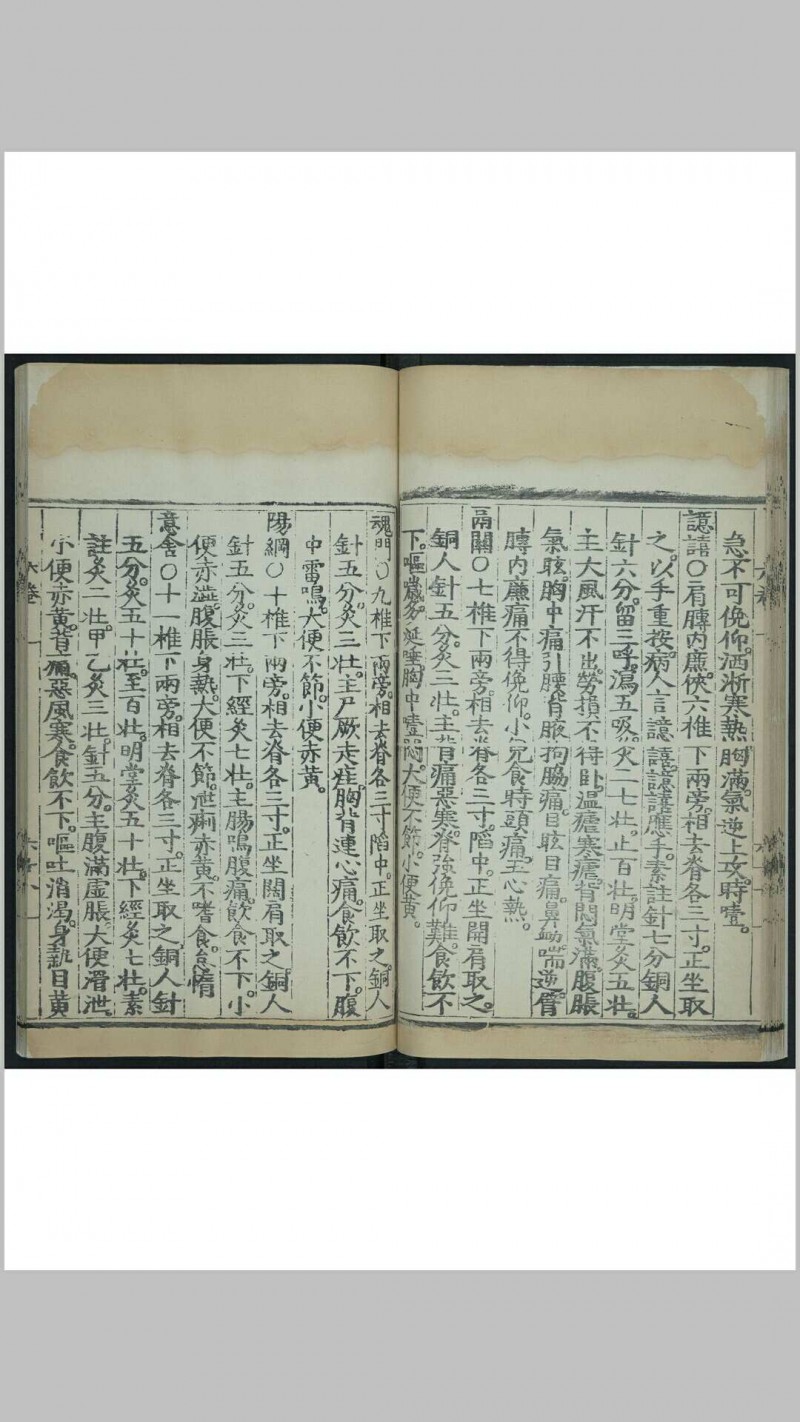 急不可俛仰。洒淅寒熱。胸滿。氣逆上攻。時噎。
譩譆〇肩膊內廉。俠六椎下兩旁。相去脊各三寸。正坐取
之。以手重按。病人言譩譆。譩譆應手。素註針七分。銅人
針六分。留三呼。瀉五吸。灸二七壯。止百壯。明堂灸五壯。
主大風汗不出。勞損不得臥。溫瘧寒瘧。背悶氣滿。腹脹
氣眩。胸中痛引腰背。腋拘脇痛。目眩目痛。鼻衄喘逆。臂
膊內廉痛不得俛仰。小兒食時頭痛。五心熱。
膈關〇七椎下兩旁。相去脊各三寸。陷中。正坐開肩取之。
銅人針五分。灸三壯。主背痛惡寒。脊強俛仰難。食飲不
下。嘔噦多涎唾。胸中噎悶。大便不節。小便黃。
魂門〇九椎下兩旁。相去脊各三寸陷中。正坐取之。銅人
針五分。灸三壯。主尸厥走疰。胸背連心痛。食飲不下。腹
中雷鳴。大便不節。小便赤黃。
陽綱〇十椎下兩旁。相去脊各三寸。正坐闊肩取之。銅人
針五分。灸三壯。下經灸七壯。主腸鳴腹痛。飲食不下。小
便赤澁。腹脹身熱。大便不節。泄痢赤黃。不嗜食。怠惰
意舍〇十一椎下兩旁。相去脊各三寸。正坐取之銅人針
五分。灸五十壯。至百壯。明堂灸五十壯。下經灸七壯。素
註灸二壯。甲乙灸三壯。針五分。主腹滿虛脹。大便滑泄。
小便赤黃。背痛。惡風寒。食飲不下。嘔吐消渴。身熱目黃
六卷